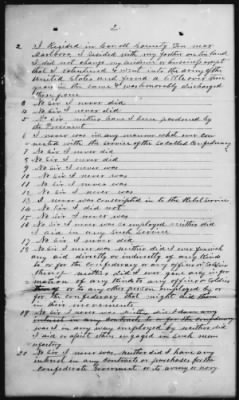 2
2 I Resided in Carroll County Ten near
I resided with my father on his land
I did not change my residence or business except
that I volunteered & went into the army of the
United States and served a little over three
years in the same & was honorably discharged
therefrom
3 No Sir I never did
4 No Sir I never did
5 No Sir neither have I been pardoned by
the President
6 I never was in any manner what ever con-
nected with the service of the so called Confederacy
7 No Sir I never did
8 No Sir I never did
9 No Sir I never was
10 No Sir I never was
11 No Sir I never was
12 No Sir I never was
13 I never was conscripted in to the Rebel Service
14 No Sir I did not
15 No Sir I never was
16 No Sir I never was so employed neither did
I aid in any such service
17 No Sir I never did
18 No Sir I never was Neither did I ever furnish
any aid directly or indirectly of any kind
to or for the Confederacy or any officer or Soldier
thereof neither did I ever give any infor-
mation of any kind to any officer or Soldier
or to any other person employed by or
for the confederacy that might aid them
in their movements
19 No Sir I never was
interest in any contracts to or for the confederacy
was I in any way employed by neither did
I aid or assist others engaged in such man-
ufactory
20 No Sir I never was Neither did I have any
interest in any contracts or purchases for the
Confederate Government or its army or navy